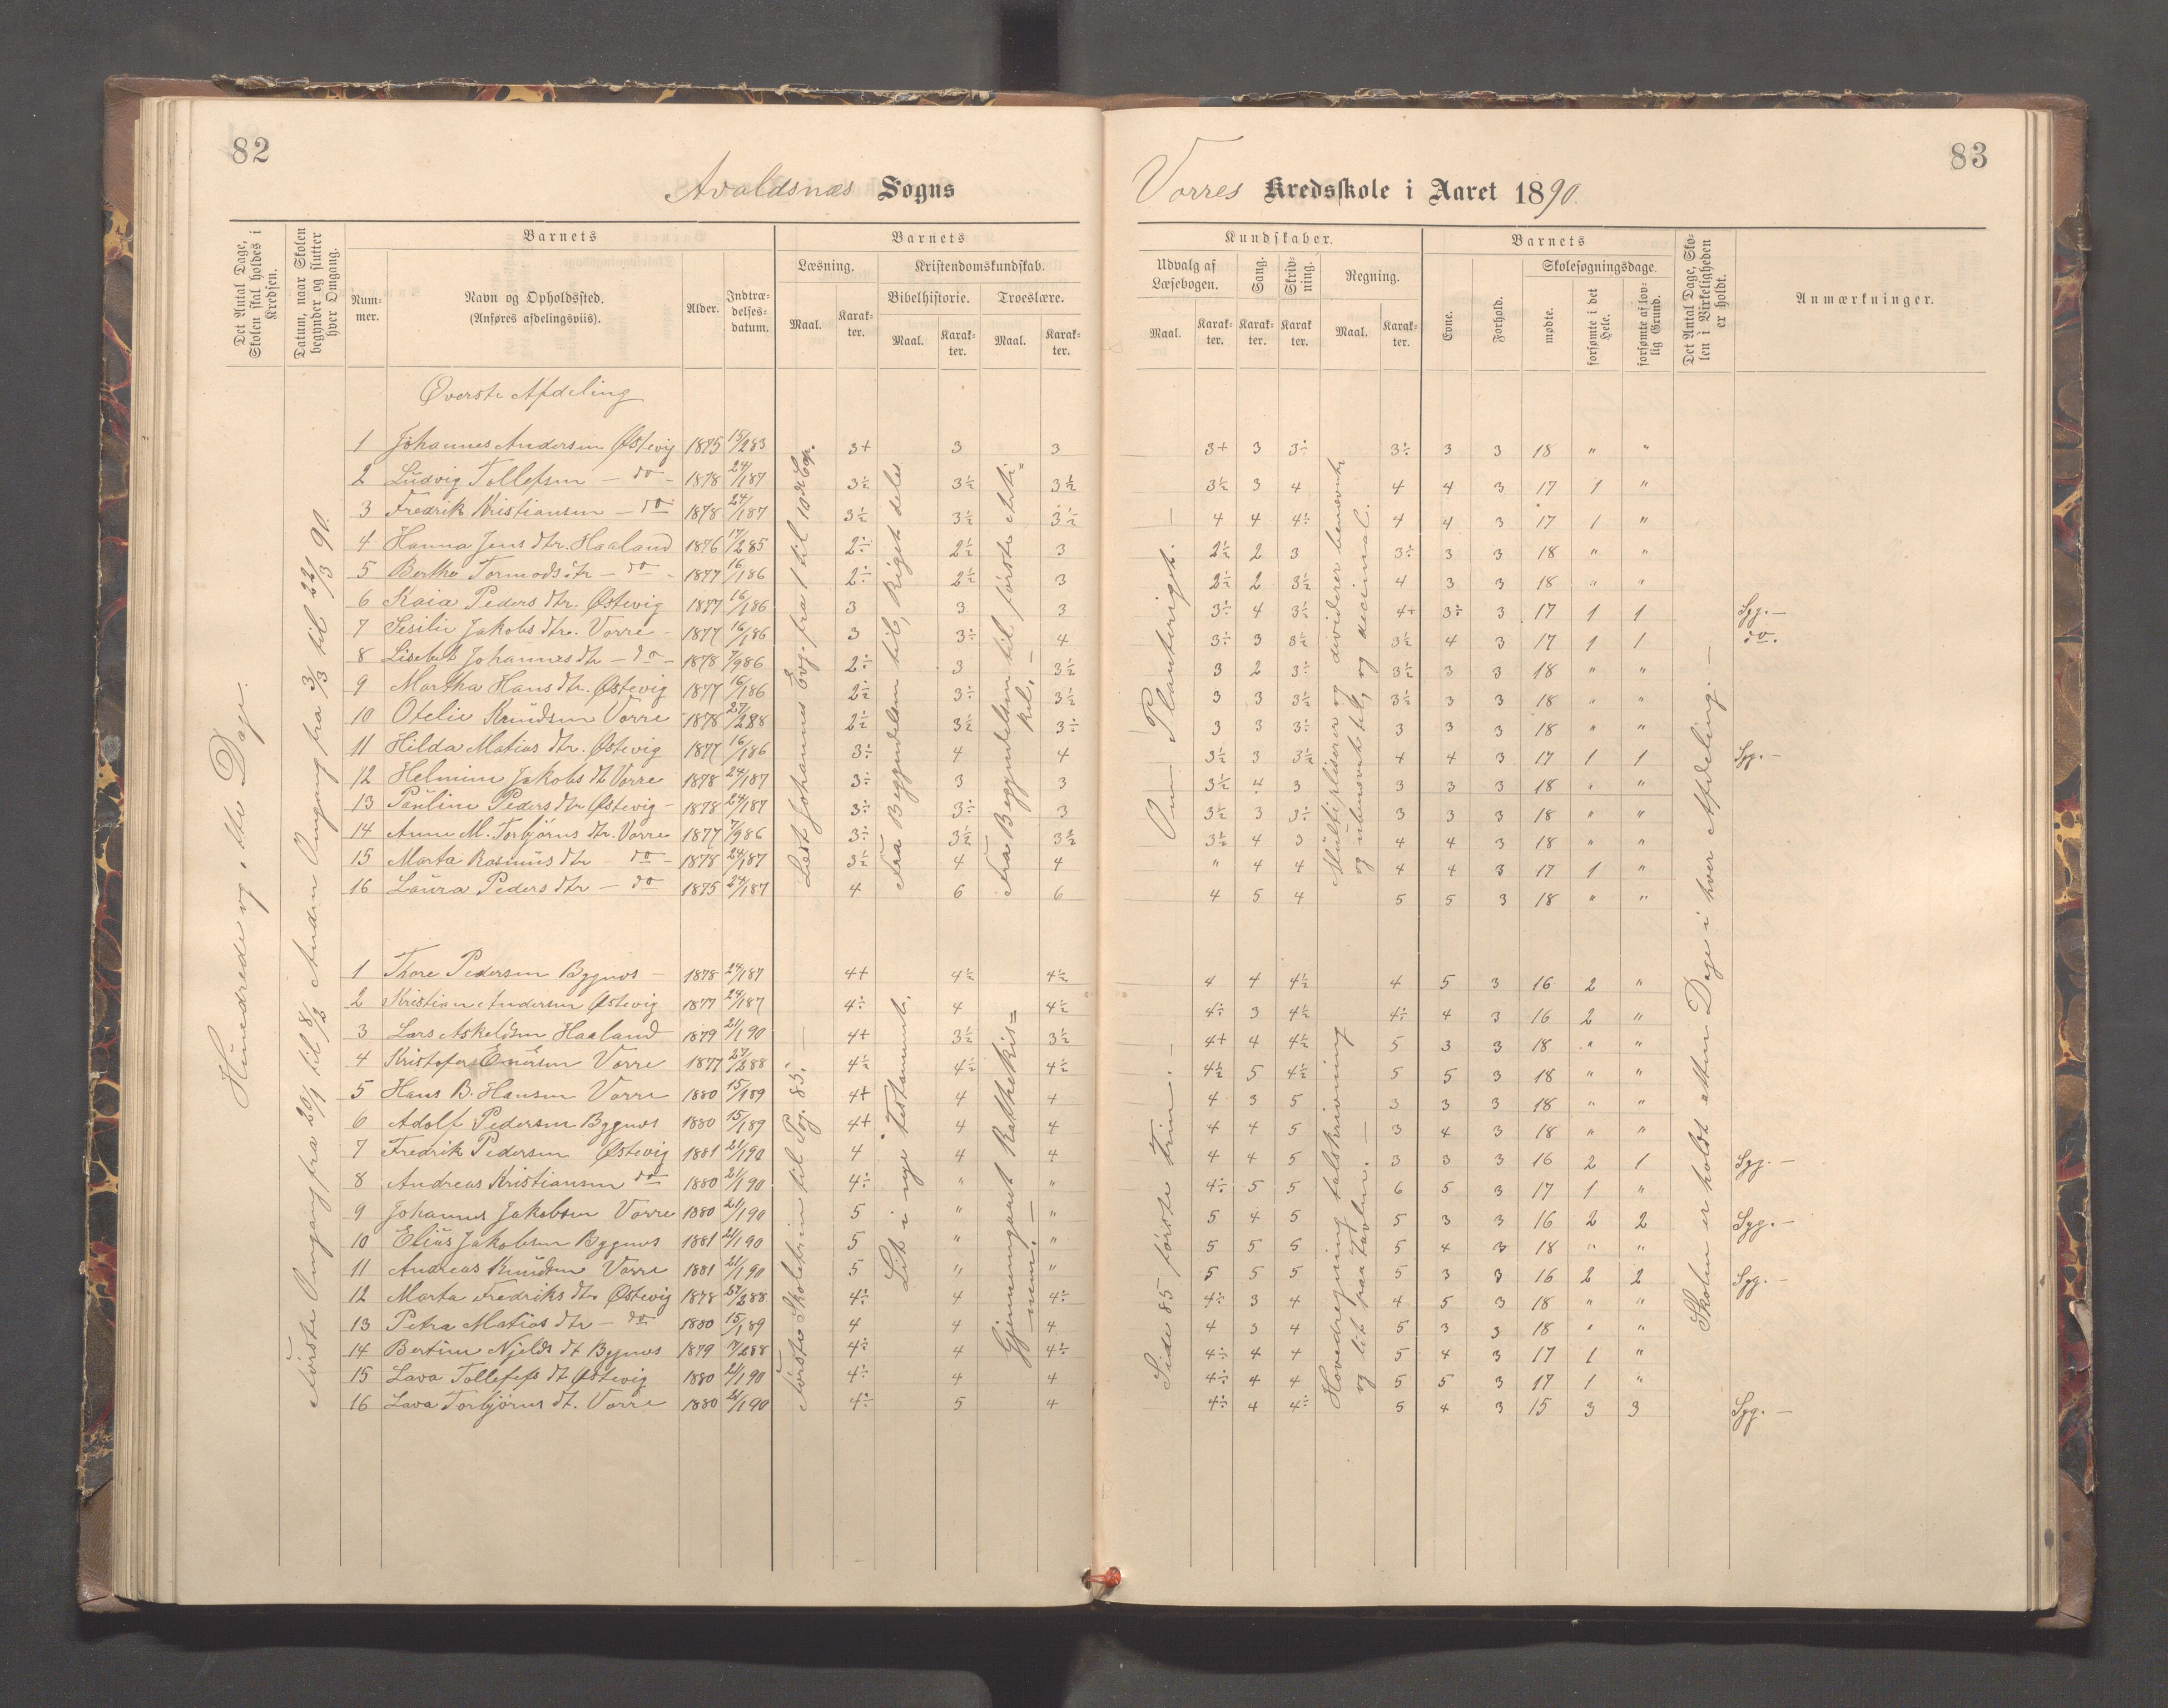 82
Avaldsnæs Sogns
Det Antal Dage, Skolen skal holdes i Kredsen.
Datum, naar Skolen begynder og slutter hver Omgang.
Barnets
Num-mer.
Navn og Opholdssted.
(Anføres afdelingsviis).
Alder.
Indtræ-delses-datum.
Barnets
Læsning.
Maal.
Karak-ter.
Kristendomskundskab.
Bibelhistorie.
Maal.
Karak-ter.
Troeslære.
Maal.
Karak-ter.
Hundrede og otte Dage.
Første Omgang fra 20/1 til 8/2 Anden Omgang fra 3/3 til 22/3 90.
Øverste Afdeling
1 Johannes Andersen Østevig 1875 15/283 3+ 3 3
2 Ludvig Tollefsen - do - 1878 24/187 3½ 3½ 3½
3 Fredrik Kristiansen - do 1878 24/187 3½ 3½ 3½
4 Hanna Jens dtr. Haaland 1876 17/285 2÷ 2½ 3
5 Berthe Tormods dtr - do - 1877 16/186 2÷ 2½ 3
6 Kaia Peders dtr. Østevig 1877 16/186 3 3 3
7 Sesilie Jakobs dtr. Vorre - 1877 16/186 3 3÷ 4
8 Lisebet Johannes dtr - do - 1878 7/986 2÷ 3 3½
9 Martha Hans dtr. Østevig 1877 16/186 2½ 3÷ 3½
10 Otelie Knudsen Vorre 1878 27/288 2½ 3½ 3÷
11 Hilda Matias dtr. Østevig 1877 16/186 3÷ 4 4
12 Helmine Jakobs dt Vorre 1878 24/187 3÷ 3 3
13 Pauline Peders dtr Østevig - 1878 24/187 3÷ 3÷ 3
14 Anne M. Torbjørns dtr. Vorre 1877 7/986 3÷ 3½ 3½
15 Marta Rasmus dtr - do - 1878 24/187 3½ 4 4
16 Laura Peders dtr - do 1875 24/187 4 6 6
Læst Johannes Evg. fra 1 til 10de Cap.
Fra Begyndelsen til, Riget deles
Fra Begyndelsen til første Arti=
kel. -
1 Thore Pedersen Bygnes - 1878 24/187 4+ 4½ 4½
2 Kristian Andersen Østevig 1877 24/187 4÷ 4 4½
3 Lars Askeldsen Haaland 1879 21/190 4+ 3½ 3½
4 Kristofer Enersen Vorre 1877 27/288 4½ 4½ 4½
5 Hans B. Hansen Vorre 1880 15/189 4+ 4 4
6 Adolf Pedersen Bygnes 1880 15/189 4+ 4 4
7 Fredrik Pedersen Østevig 1881 21/190 4 4 4
8 Andreas Kristiansen do 1880 21/190 4÷ " "
9 Johannes Jakobsen Vorre 1880 21/190 5 " "
10 Elias Jakobsen Bygnes 1881 21/190 5 " "
11 Andreas Knudsen Vorre 1881 21/190 5 " "
12 Marta Fredriks dtr Østevig 1878 27/288 4÷ 4 4÷
13 Petra Matias dtr - do 1880 15/189 4 4 4
14 Bertine Njelds dt Bygnes 1879 7/288 4÷ 4 4÷
15 Lava Tollefs dt Østevig 1880 21/190 4÷ 4 4
16 Lava Torbjørns dt. Vorre 1880 21/190 4÷ 5 4
Første Skoletrin til Pag. 85. -
Lit i nye Testamente.
Gjennemgaaet Kathekis=
men. -
83
Vorres Kredsskole i Aaret 1890.
Kundskaber.
Udvalg af Læsebogen.
Maal.
Karak-ter.
Sang.
Karak-ter.
Skriv-ning.
Karak ter.
Regning.
Maal.
Karak-ter.
Barnets
Evne.
Forhold.
Skolesøgningsdage.
mødte.
forsømte i det Hele.
forsømte af lov-lig Grund.
Det Antal Dage, Sko-len i Virkeligheden er holdt.
Anmærkninger.
3+ 3 3÷ 3÷ 3 3 18 " "
3½ 3 4 4 4 3 17 1 "
4 4 4÷ 4 4 3 17 1 "
2½ 2 3 3÷ 3 3 18 " "
2½ 2 3½ 4 3 3 18 " "
3÷ 4 3½ 4+ 3÷ 3 17 1 1 Syg. -
3÷ 3 3½ 3½ 4 3 17 1 1 do.
3 2 3÷ 3½ 3 3 18 " "
3 3 3½ 3½ 3 3 18 " "
3 3 3÷ 3 3 3 18 " "
3½ 3 3½ 4 4 3 17 1 1 Syg. -
3½ 4 3 3 3 3 18 " "
3½ 3 3÷ 3 3 3 18 " "
3½ 4 3 4 4 3 18 " "
" 4 4 4 4 3 17 1 "
4 5 4 5 5 3 18 " "
Om Planteriget. -
Multipliserer og dividerer benævnte
og ubenævnte tal, og decimal.
4 4 4½ 4 5 3 16 2 "
4÷ 3 4½ 4÷ 4 3 16 2 "
4+ 4 4½ 5 3 3 18 " "
4½ 5 4½ 5 5 3 18 " "
4 3 5 3 3 3 18 " "
4 4 5 3 4 3 18 " "
4 4 5 3 3 3 16 2 1 Syg. -
4÷ 5 5 6 5 3 17 1 "
5 4 5 5 3 3 16 2 2 Syg. -
5 5 5 5 4 3 18 " "
5 5 5 5 3 3 16 2 2 Syg. -
4÷ 3 4 4 5 3 18 " "
4 3 4 5 3 3 18 " "
4÷ 4 4 5 4 3 17 1 "
4÷ 4 4 5 5 3 17 1 "
4÷ 4 4÷ 5 4 3 15 3 3 Syg. -
Side 85 første Trin. -
Hovedregning talskrivning
og lit paa Tavlen. -
Skolen er holdt atten Dage i hver Afdeling. -